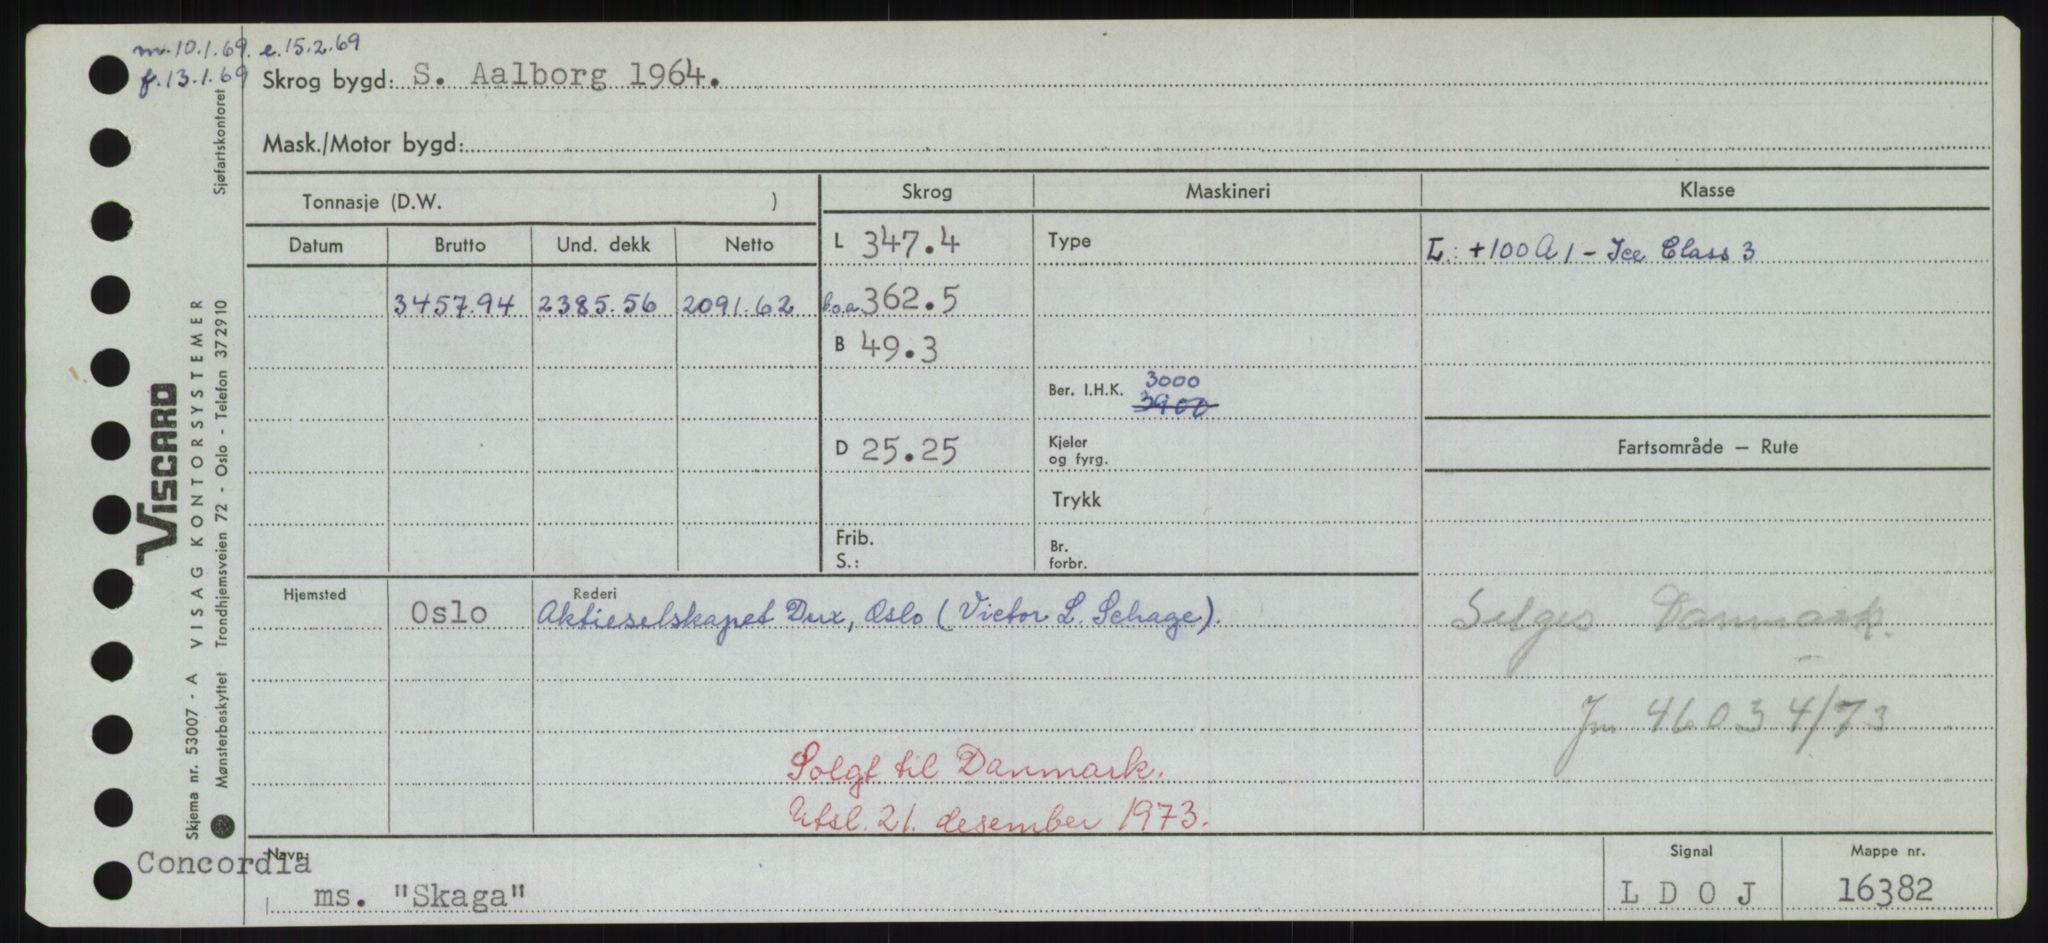 m. 10.1.69. e. 15.2.69
f. 13.1.69
Skrog bygd: S. Aalborg 1964.
Mask./Motor bygd:
Tonnasje (D.W. )
Skrog
Maskineri
Klasse
Datum
Brutto
Und. dekk
Netto
L 347.4
Type
L: +100A1 - Ice Class 3
3457.94
2385.56
2091.62
l.o.a. 362.5
B 49.3
Ber. I.H.K. 3000
3900
D 25.25
Kjeler
og fyrg.
Fartsområde — Rute
Trykk
Frib.
S.:
Br.
forbr.
Hjemsted
Oslo
Rederi
Aktieselskapet Dux, Oslo (Victor L. Schage).
Selges Danmark.
Jn 46034/73
Solgt til Danmark.
Utsl. 21. desember 1973.
Navn:
Concordia
ms. "Skaga"
Signal
LDOJ
Mappe nr.
16382
VISCARD
Skjema nr. 53007 - A VISAG KONTORSYSTEMER
Mønsterbeskyttet Trondhjemsveien 72 - Oslo - Telefon 372910
Sjøfartskontoret